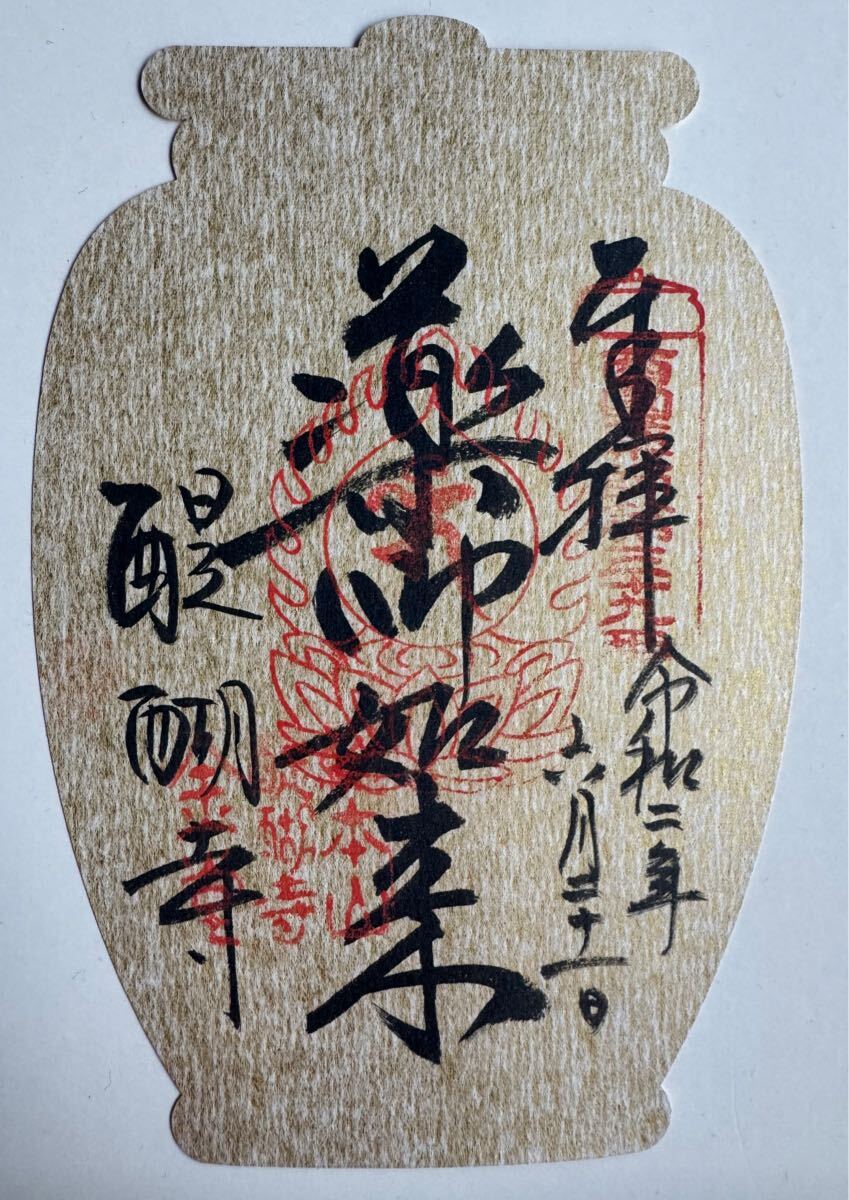 奉拝
令和二年
六月二十一日
薬師如来
醍醐寺
本山
醍醐寺